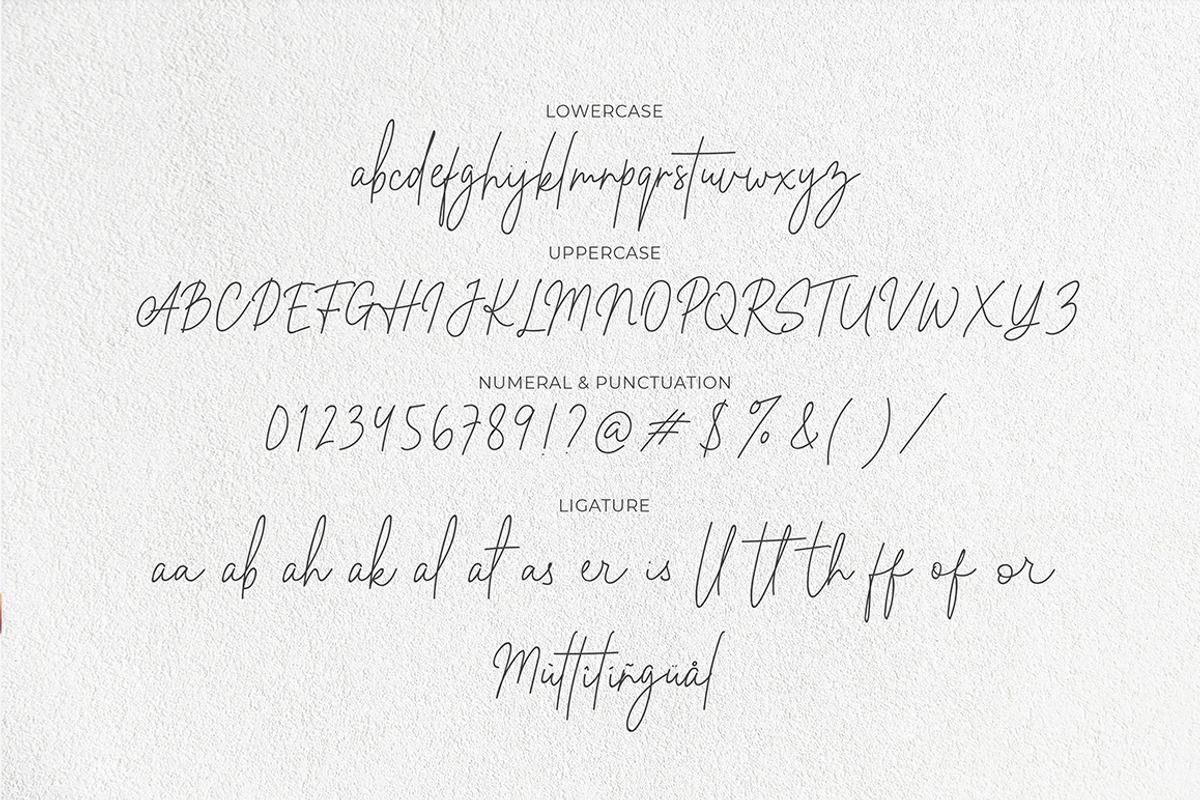 LOWERCASE
abcdefghijklmnpqrstuvwxyz
UPPERCASE
ABCDEFGHIJKLMNOPQRSTUVWXYZ
NUMERAL & PUNCTUATION
0123456789!?@#$%&()/
LIGATURE
aa ab ah ak al at as er is ll tt th ff of or
Mùttîtíñgüål